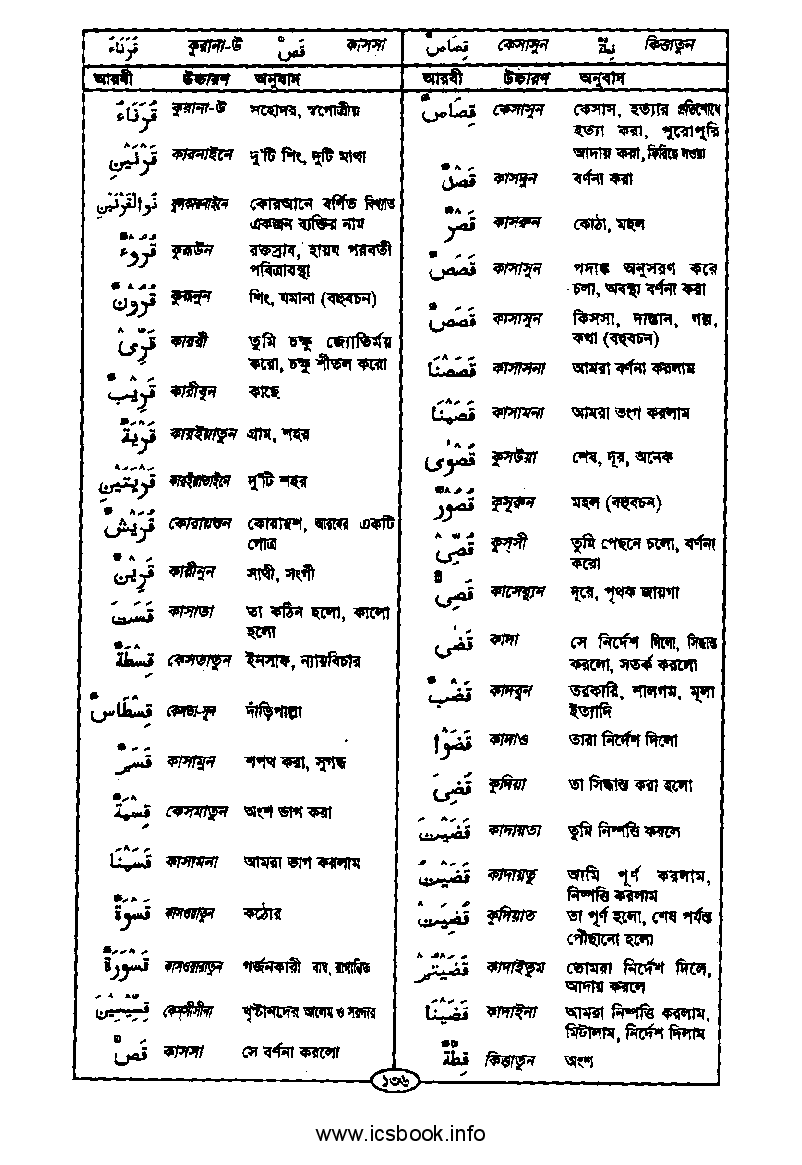 قُرَنَاءُ কুরানা-উ قَصَّ কাসসা
আরবী উচ্চারণ অনুবাদ
قُرَنَاءُ কুরানা-উ সহোদর, স্বগোত্রীয়
قَرْنَيْنِ কারনাইনে দু'টি শিং, দুটি মাথা
ذُوالْقَرْنَيْنِ কোরআনে বর্ণিত বিখ্যাত
একজন ব্যক্তির নাম
قُرُوْءٌ কুরূউন রক্তস্রাব, হায়য পরবর্তী
পবিত্রাবস্থা
قُرُوْنٌ কুরূনুন শিং, যমানা (বহুবচন)
قَرِّىْ কাররী তুমি চক্ষু জ্যোতির্ময়
করো, চক্ষু শীতল করো
قَرِيْبٌ কারীবুন কাছে
قَرْيَةٌ কারইয়াতুন গ্রাম, শহর
قَرْيَتَيْنِ কারইয়াতাইনে দু'টি শহর
قُرَيْشٌ কোরায়শুন কোরায়শ, আরবের একটি
গোত্র
قَرِيْنٌ কারীনুন সাথী, সংগী
قَسَتْ কাসাতা তা কঠিন হলো, কালো
হলো
قِسْطَةٌ কেসতাতুন ইনসাফ, ন্যায়বিচার
قِسْطَاسٌ কেসতা-সুন দাঁড়িপাল্লা
কাসামুন শপথ করা, সুগন্ধ
কেসমাতুন অংশ ভাগ করা
কাসামনা আমরা ভাগ করলাম
قَسْوَةٌ কাসওয়াতুন কঠোর
قَسْوَرَةٌ কাসওয়ারাতুন গর্জনকারী বাঘ, রাগান্বিত
قِسِّيْسِيْنَ কেসসীসীনা খৃষ্টানদের আলেম ও সরদার
قَصَّ কাসসা সে বর্ণনা করলো
قِصَاصٌ কেসাসুন কিত্তাতুন
আরবী উচ্চারণ অনুবাদ
قِصَاصٌ কেসাসুন কেসাস, হত্যার প্রতিশোধে
হত্যা করা, পুরোপুরি
আদায় করা, ফিরিয়ে দেওয়া
কাসদুন বর্ণনা করা
قَصْرٌ কাসরুন কোঠা, মহল
قَصَصٌ কাসাসুন পদাঙ্ক অনুসরণ করে
চলা, অবস্থা বর্ণনা করা
قَصَصٌ কাসাসুন কিসসা, দাস্তান, গল্প,
কথা (বহুবচন)
قَصَصْنَا কাসাসনা আমরা বর্ণনা করলাম
কাসামনা আমরা ভংগ করলাম
قُصْوٰى কুসউয়া শেষ, দূর, অনেক
قُصُوْرٌ কুসূরুন মহল (বহুবচন)
قُصِّىْ কুসসী তুমি পেছনে চলো, বর্ণনা
করো
قَصِىٌّ কাসেয়্যুন দূরে, পৃথক জায়গা
قَضٰى কাদা সে নির্দেশ দিলো, সিদ্ধান্ত
করলো, সতর্ক করলো
قَضْبٌ কাদবুন তরকারি, শালগম, মূলা
ইত্যাদি
قَضَوْا কাদাও তারা নির্দেশ দিলো
قُضِىَ কুদিয়া তা সিদ্ধান্ত করা হলো
قَضَيْتَ কাদায়তা তুমি নিষ্পত্তি করলে
قَضَيْتُ কাদায়তু আমি পূর্ণ করলাম,
নিষ্পত্তি করলাম
قُضِيَتْ কুদিয়াত তা পূর্ণ হলো, শেষ পর্যন্ত
পৌঁছানো হলো
قَضَيْتُمْ কাদাইতুম তোমরা নির্দেশ দিলে,
আদায় করলে
قَضَيْنَا কাদাইনা আমরা নিষ্পত্তি করলাম,
মিটালাম, নির্দেশ দিলাম
قِطَّةٌ কিত্তাতুন অংশ
১৩৬
www.icsbook.info